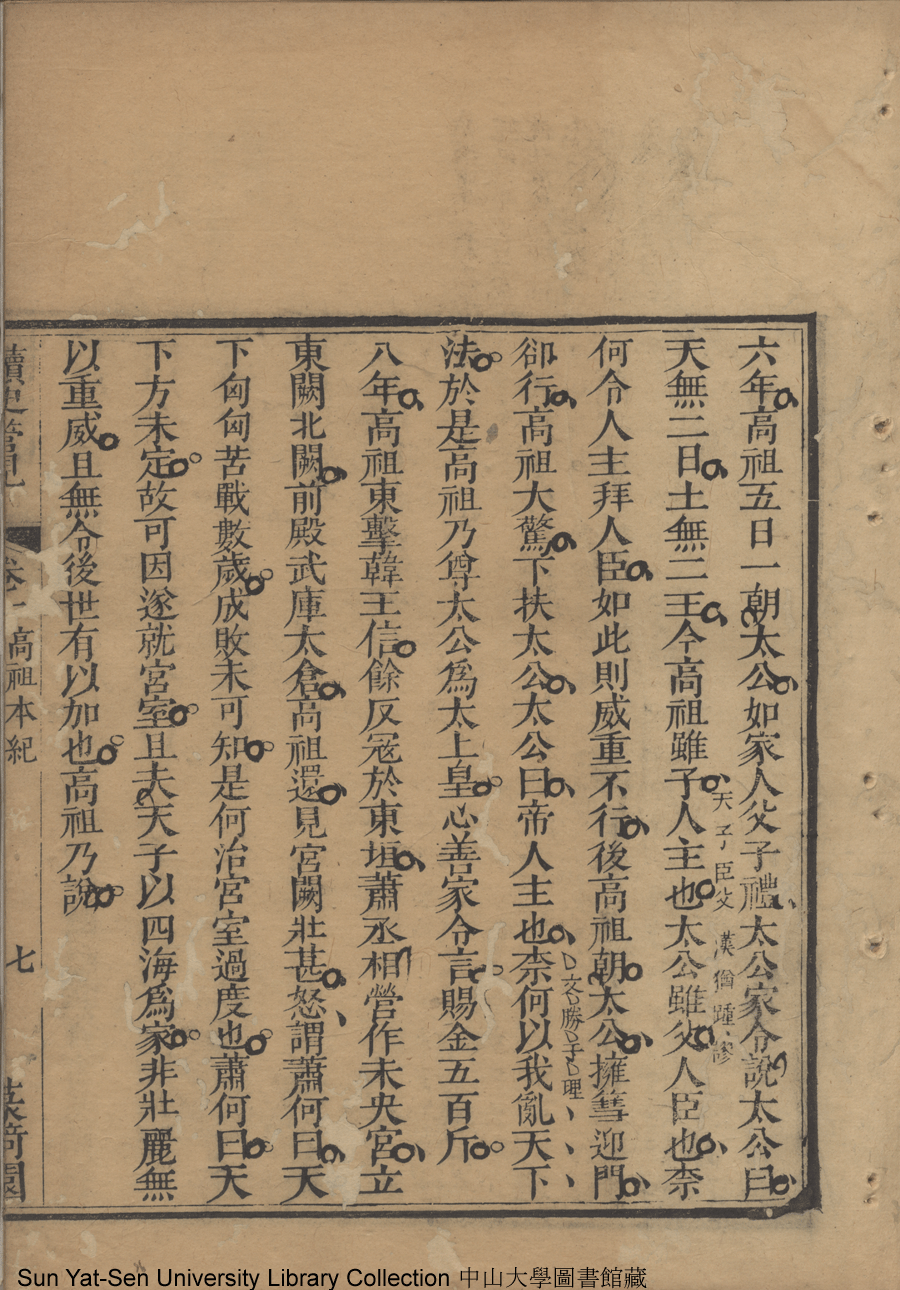 六年高祖五日一朝太公如家人父子禮太公家令說太公曰
天無二日土無二王今高祖雖子人主也太公雖父人臣也柰
天子臣父漢猶踵
何令人主拜人臣如此則威重不行後高祖朝太公擁篲迎門
卻行高祖大驚下扶太公太公曰帝人主也柰何以我亂天下
文勝于理
法於是高祖乃尊太公為太上皇心善家令言賜金五百斤
八年高祖東擊韓王信餘反寇於東垣蕭丞相營作未央宮立
東闕北闕前殿武庫太倉高祖還見宮闕壯甚怒謂蕭何曰天
下匈匈苦戰數歲成敗未可知是何治宮室過度也蕭何曰天
下方未定故可因遂就宮室且夫天子以四海為家非壯麗無
以重威且無令後世有以加也高祖乃說
讀史管見 卷一 高祖本紀 七
Sun Yat-Sen University Library Collection 中山大學圖書館藏